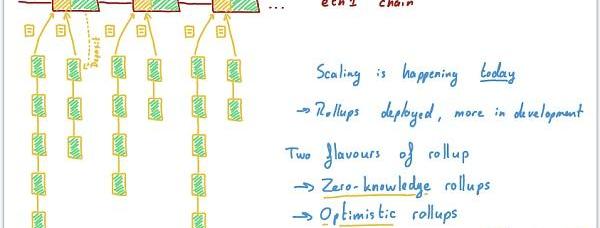 ... eth1 chain
Deposit
Scaling is happening today
→ Rollups deployed, more in development
Two flavours of rollup
→ Zero-knowledge rollups
→ Optimistic rollups